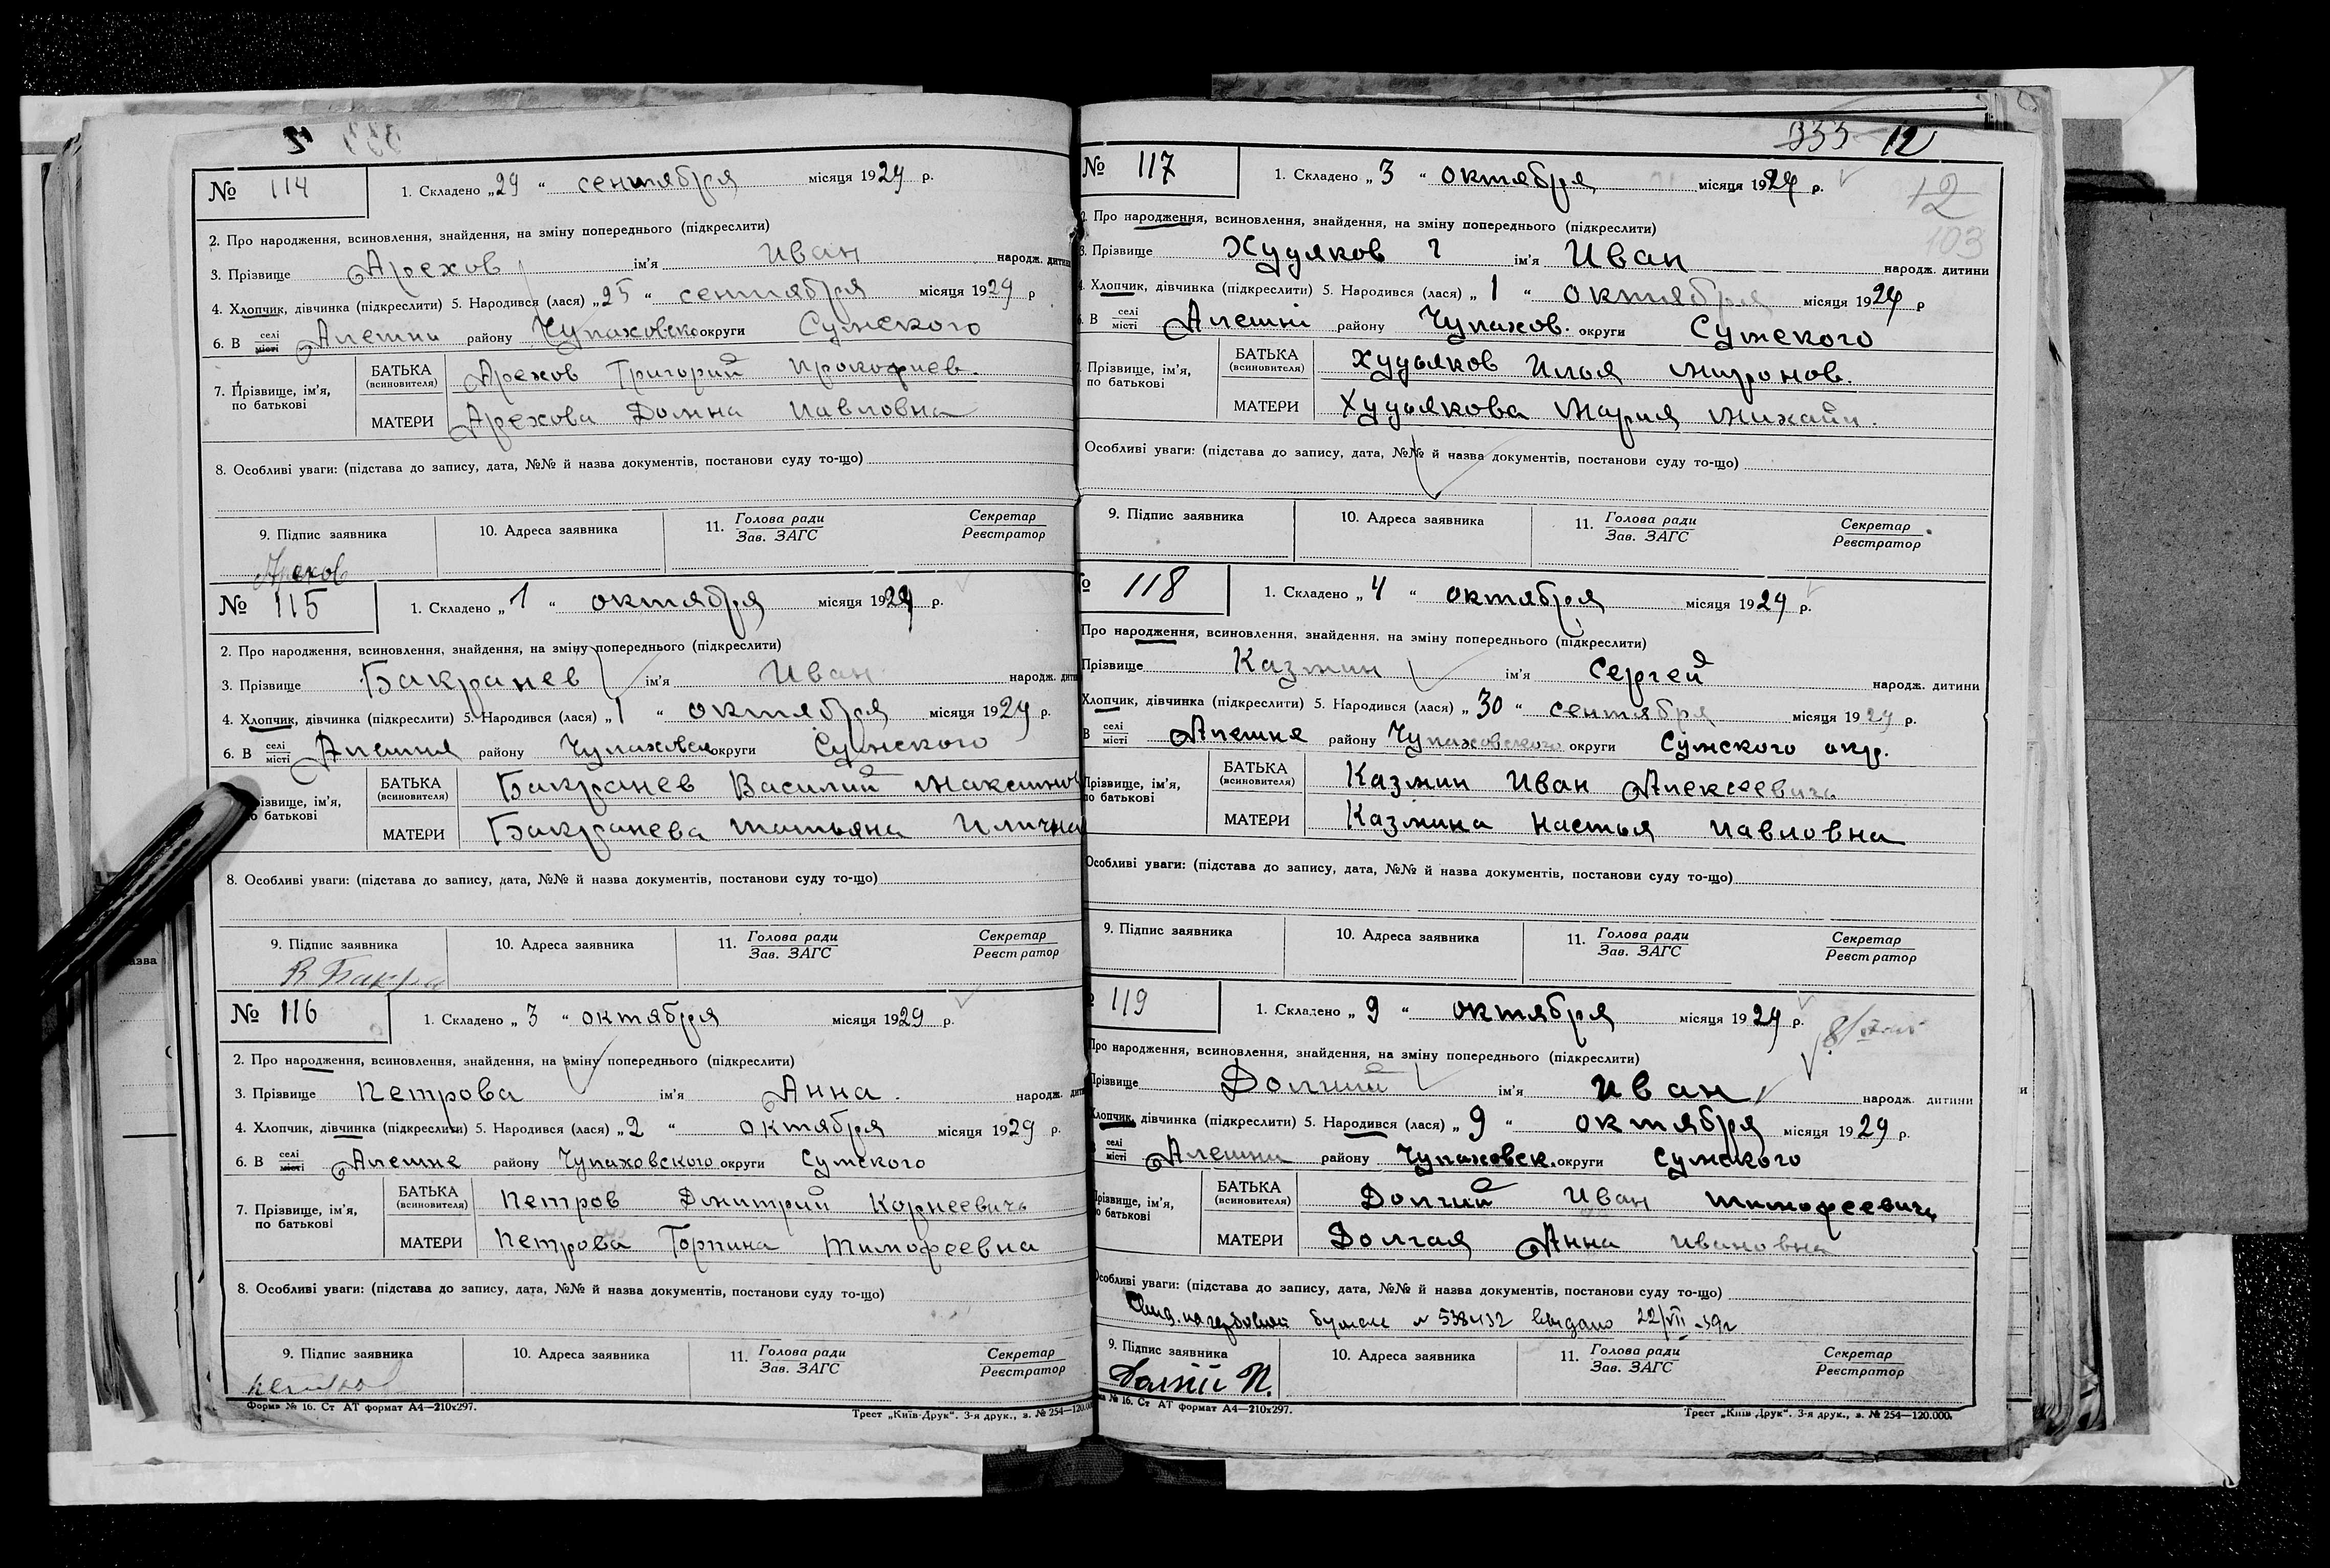 № 114
1. Складено „29“ сентября місяця 1929 р.
2. Про народження, всиновлення, знайдення, на зміну попереднього (підкреслити)
3. Прізвище Арехов ім'я Иван народж. дитини
4. Хлопчик, дівчинка (підкреслити) 5. Народився (лася) „25“ сентября місяця 1929 р
6. В селі місті Алешни району Чупаховско округи Сумского
7. Прізвище, ім'я, по батькові
БАТЬКА (всиновителя) Арехов Григорий Прокофиев.
МАТЕРИ Арехова Домна Павловна
8. Особливі уваги: (підстава до запису, дата, №№ й назва документів, постанови суду то-що)
9. Підпис заявника 10. Адреса заявника 11. Голова ради Зав. ЗАГС Секретар Реєстратор
Арехов
№ 115
1. Складено „1“ октября місяця 1929 р.
2. Про народження, всиновлення, знайдення, на зміну попереднього (підкреслити)
3. Прізвище Бакранев ім'я Иван народж. дити
4. Хлопчик, дівчинка (підкреслити) 5. Народився (лася) „1“ октября місяця 1929 р.
6. В селі місті Алешня району Чупаховск округи Сумского
різвище, ім'я, по батькові
БАТЬКА (всиновителя) Бакранев Василий Максимов
МАТЕРИ Бакранева Татьяна Илична
8. Особливі уваги: (підстава до запису, дата, №№ й назва документів, постанови суду то-що)
9. Підпис заявника 10. Адреса заявника 11. Голова ради Зав. ЗАГС Секретар Реєстратор
В Бакра
№ 116
1. Складено „3“ октября місяця 1929 р.
2. Про народження, всиновлення, знайдення, на зміну попереднього (підкреслити)
3. Прізвище Петрова ім'я Анна. народж. дити
4. Хлопчик, дівчинка (підкреслити) 5. Народився (лася) „2“ октября місяця 1929 р.
6. В селі місті Алешне району Чупаховского округи Сумского
7. Прізвище, ім'я, по батькові
БАТЬКА (всиновителя) Петров Дмитрий Корнеевичь
МАТЕРИ Петрова Горпина Тимофеевна
8. Особливі уваги: (підстава до запису, дата, №№ й назва документів, постанови суду то-що)
9. Підпис заявника 10. Адреса заявника 11. Голова ради Зав. ЗАГС Секретар Реєстратор
Форма № 16. Ст АТ формат А4—210х297. Трест „Київ-Друк“. 3-я друк., з. № 254—120.00
333 12
12
103
№ 117
1. Складено „3“ октября місяця 1929 р.
Про народження, всиновлення, знайдення, на зміну попереднього (підкреслити)
3. Прізвище Худяков ім'я Иван народж. дитини
4. Хлопчик, дівчинка (підкреслити) 5. Народився (лася) „1“ октября місяця 1929 р
6. В селі місті Алешні району Чупахов. округи Сумского
Прізвище, ім'я, по батькові
БАТЬКА (всиновителя) Худьяков Илья Миронов.
МАТЕРИ Худьякова Мария Михайл.
Особливі уваги: (підстава до запису, дата, №№ й назва документів, постанови суду то-що)
9. Підпис заявника 10. Адреса заявника 11. Голова ради Зав. ЗАГС Секретар Реєстратор
118
1. Складено „4“ октября місяця 1929 р.
Про народження, всиновлення, знайдення, на зміну попереднього (підкреслити)
Прізвище Казмин ім'я Сергей народж. дитини
Хлопчик, дівчинка (підкреслити) 5. Народився (лася) „30“ сентября місяця 1929 р.
В селі місті Алешня району Чупаховского округи Сумского окр.
Прізвище, ім'я, по батькові
БАТЬКА (всиновителя) Казмин Иван Алексеевичь
МАТЕРИ Казмина Настья Павловна
Особливі уваги: (підстава до запису, дата, №№ й назва документів, постанови суду то-що)
9. Підпис заявника 10. Адреса заявника 11. Голова ради Зав. ЗАГС Секретар Реєстратор
119
1. Складено „9“ октября місяця 1929 р.
Про народження, всиновлення, знайдення, на зміну попереднього (підкреслити)
Прізвище Долгий ім'я Иван народж. дитини
Хлопчик, дівчинка (підкреслити) 5. Народився (лася) „9“ октября місяця 1929 р.
селі місті Алешни району Чупаховск. округи Сумского
Прізвище, ім'я, по батькові
БАТЬКА (всиновителя) Долгий Иван Тимофеевичь
МАТЕРИ Долгая Анна Ивановна
Особливі уваги: (підстава до запису, дата, №№ й назва документів, постанови суду то-що)
на гербовой бумаге № 538432 выдано 22/VII-39г
9. Підпис заявника 10. Адреса заявника 11. Голова ради Зав. ЗАГС Секретар Реєстратор
Долгій И.
№ 16. Ст АТ формат А4—210х297. Трест „Київ Друк“. 3-я друк., з. № 254—120.000.